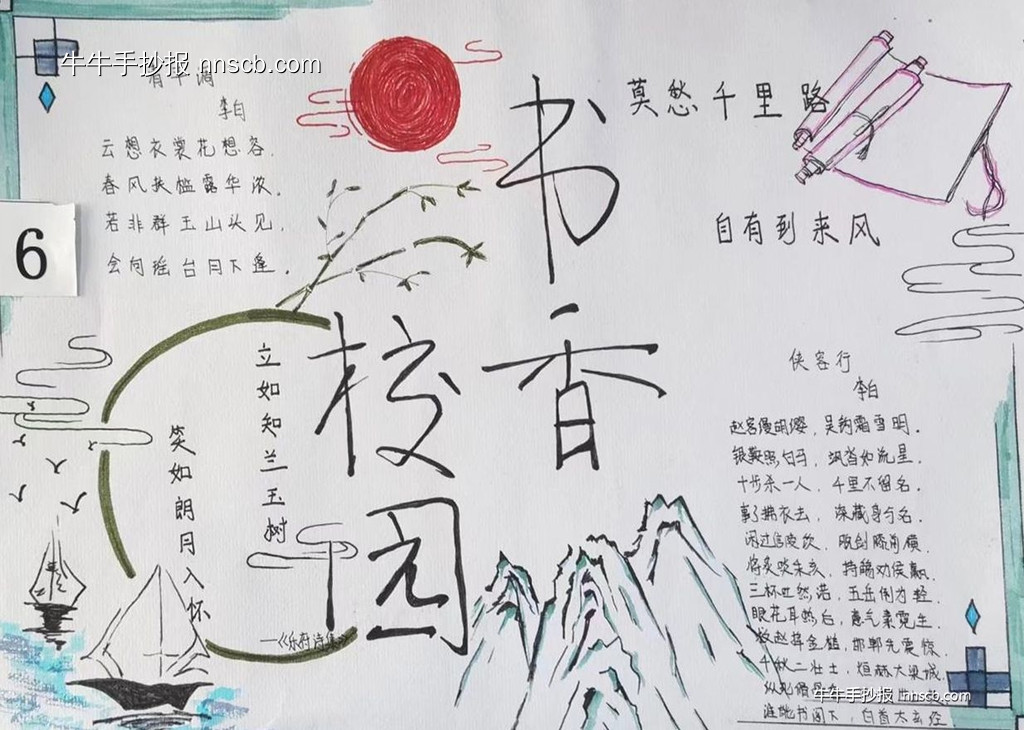 牛牛手抄报 nnscb.com
清平调
李白
云想衣裳花想容.
春风扶槛露华浓.
若非群玉山头见.
会向瑶台月下逢.
6
书香
校园
莫愁千里路
自有到来风
立如知兰玉树
笑如朗月入怀
—《乐府诗集》
侠客行
李白
赵客缦胡缨, 吴钩霜雪明.
银鞍照白马, 飒沓如流星.
十步杀一人, 千里不留名.
事了拂衣去, 深藏身与名.
闲过信陵饮, 脱剑膝前横.
将炙啖朱亥, 持觞劝侯嬴.
三杯吐然诺, 五岳倒为轻.
眼花耳热后, 意气素霓生.
救赵挥金槌, 邯郸先震惊.
千秋二壮士, 烜赫大梁城.
纵死侠骨
牛牛手抄报 nnscb.com
谁能书阁下, 白首太玄经